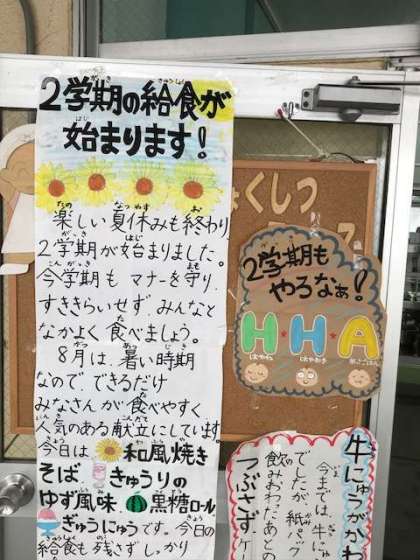 2学期の給食が
始まります!
楽しい夏休みも終わり
2学期が始まりました。
今学期もマナーを守り、
すききらいせず、みんなと
なかよく食べましょう。
8月は、暑い時期
なので、できるだけ
みなさんが食べやすく
人気のある献立にしています。
今日は和風焼き
そば、きゅうりの
ゆず風味、黒糖ロール
ぎゅうにゅうです。今日の
給食も残さず、しっかり
くしつ
2学期も
やるなぁ!
H★H★A
はやね
はやおき
あさごはん
牛にゅうがかわ
今までは、牛にゅ
でしたが紙パック
飲みおわったあとの
つぶさず